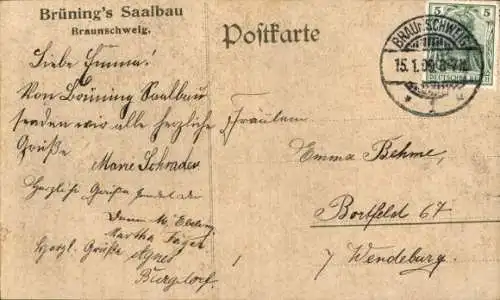 Brüning's Saalbau
Braunschweig.
Postkarte
5
BRAUNSCHWEIG
15.1.09. 6-7N.
DEUTSCHES REICH
Liebe Emma!
Von Brüning Saalbau
senden wir alle herzliche
Grüße
Marie Schrader
Herzliche Grüße sendet dir
Martha Jäger
Herzl. Grüße Agnes
Burgdorf.
Fräulein
Emma Behme,
Bortfeld 67
/ Wendeburg.